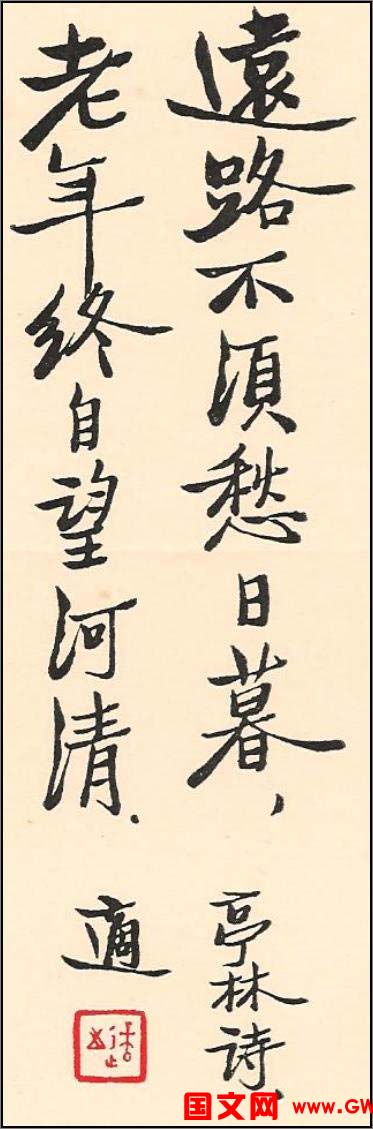 遠路不須愁日暮，
老年終自望河清．
亭林詩、
適
国文网 www.GW